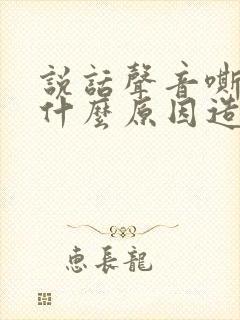 説話聲音嘶
什麼原因造
恵長龍